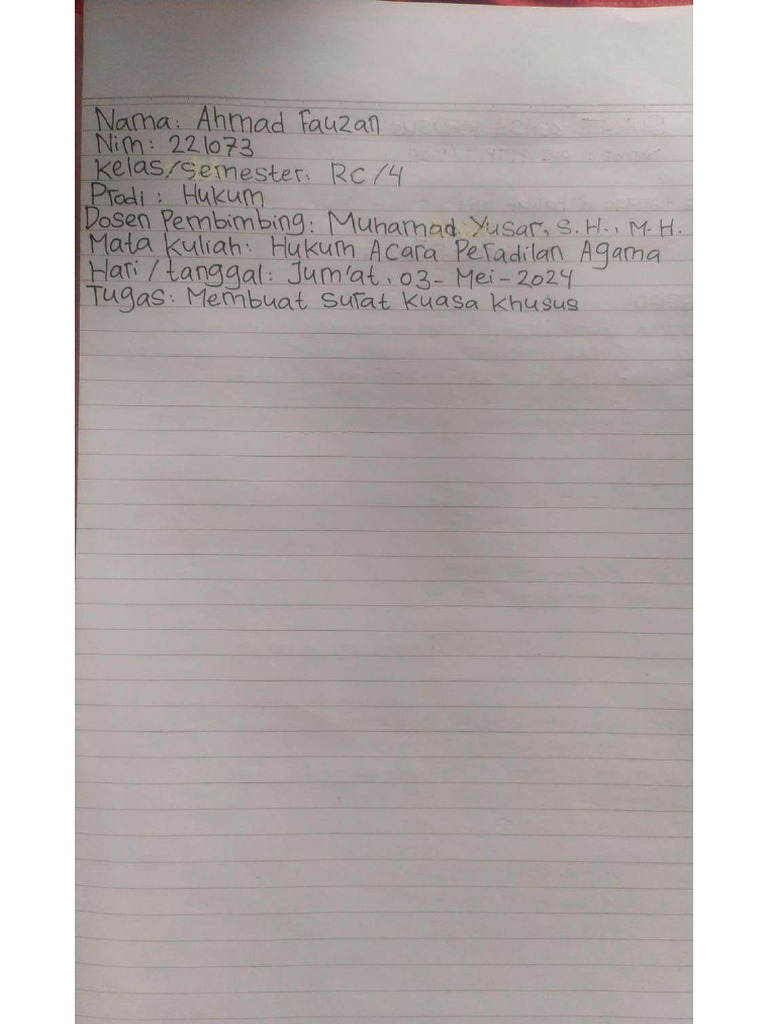 Nama: Ahmad Fauzan
Nim: 221073
Kelas/Semester: RC/4
Prodi: Hukum
Dosen Pembimbing: Muhamad Yusar, S.H., M.H.
Mata Kuliah: Hukum Acara Peradilan Agama
Hari/tanggal: Jum'at, 03-Mei-2024
Tugas: Membuat Surat Kuasa Khusus